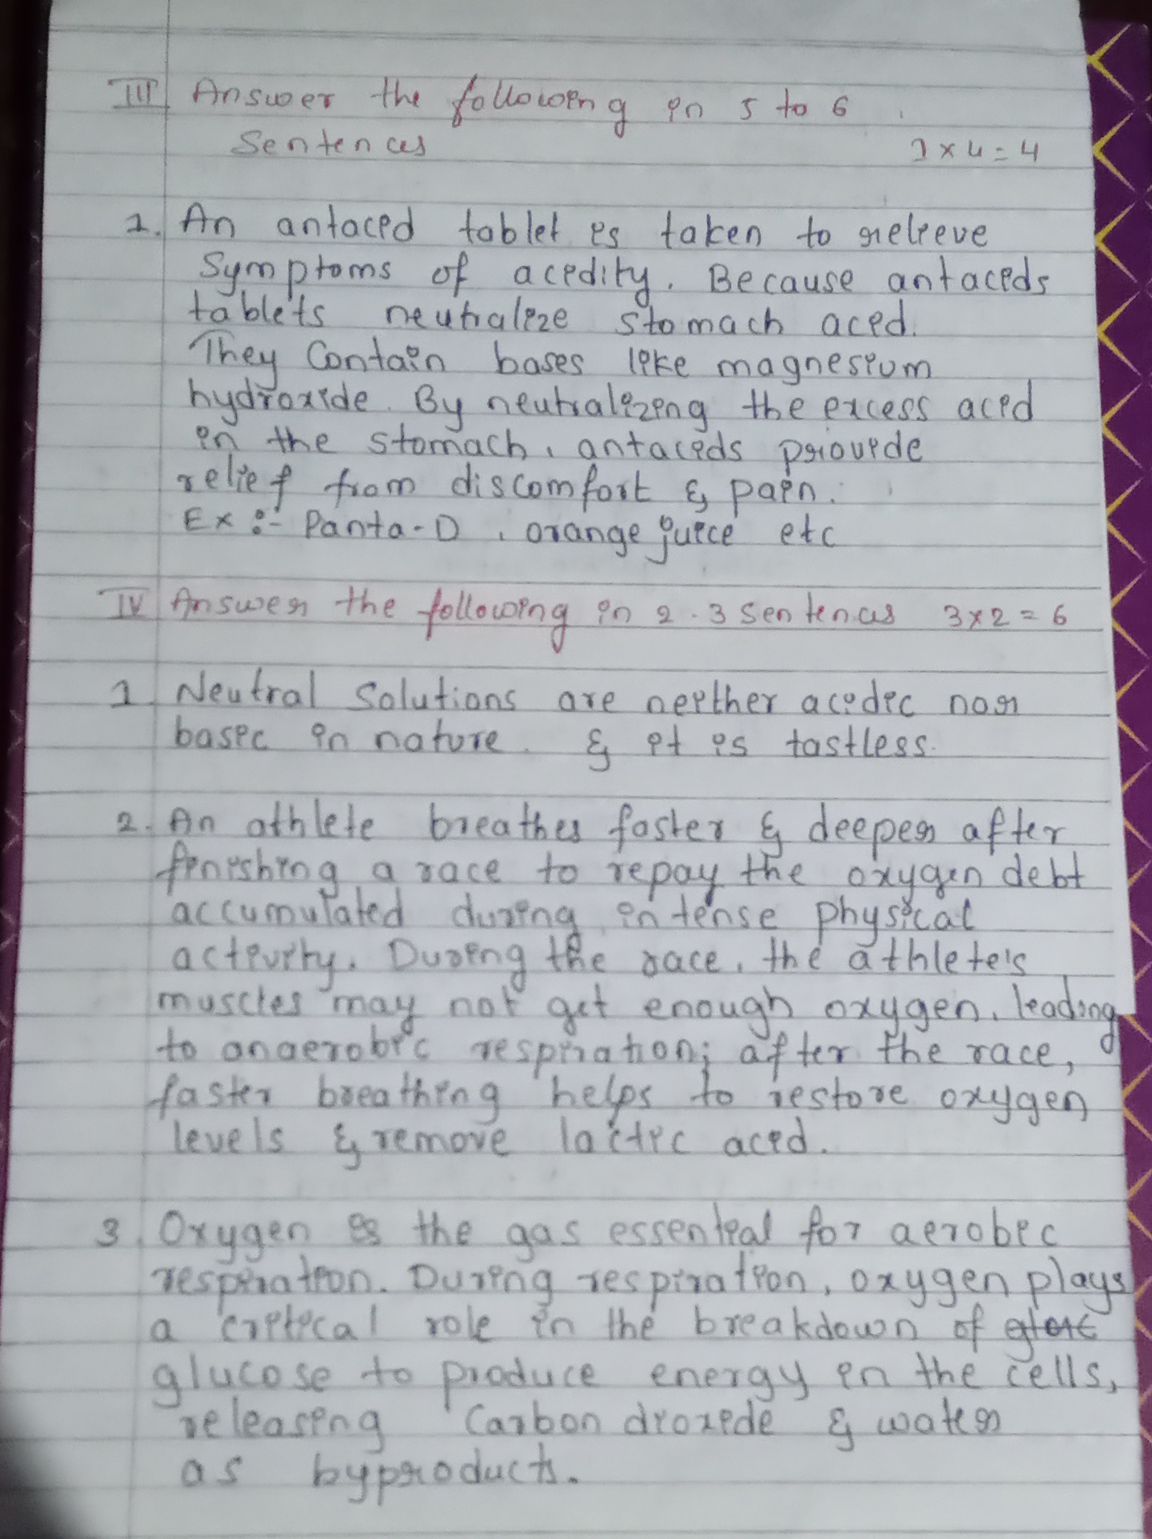 III Answer the following in 5 to 6
Sentences 1 × 4 = 4
1. An antacid tablet is taken to relieve
Symptoms of acidity. Because antacids
tablets neutralize stomach acid.
They Contain bases like magnesium
hydroxide. By neutralizing the excess acid
in the stomach, antacids provide
relief from discomfort & pain.
Ex :- Panta-D, orange juice etc
IV Answer the following in 2-3 Sentences 3×2=6
1 Neutral Solutions are neither acidic nor
basic in nature. & it is tastless.
2. An athlete breathes faster & deeper after
finishing a race to repay the oxygen debt
accumulated during intense physical
activity. During the race, the athlete's
muscles may not get enough oxygen, leading
to anaerobic respiration; after the race,
faster breathing helps to restore oxygen
levels & remove lactic acid.
3. Oxygen is the gas essential for aerobic
respiration. During respiration, oxygen plays
a critical role in the breakdown of
glucose to produce energy in the cells,
releasing Carbon dioxide & water
as byproducts.